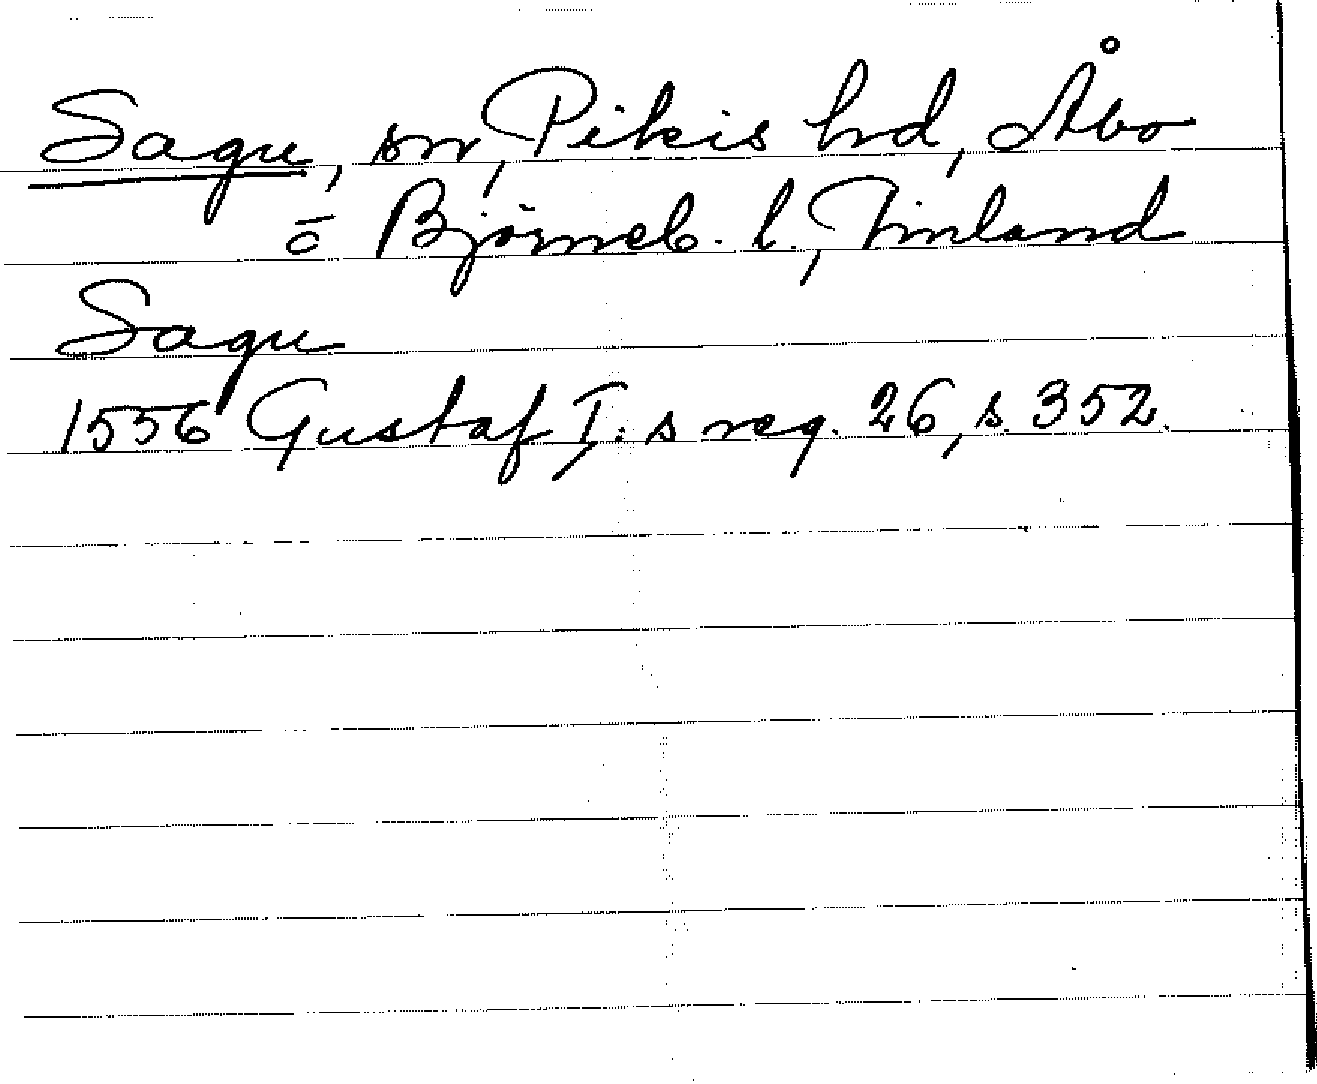 Sagu, sn, Pikis hd, Åbo
o Björneb. l., Finland
Sagu
1556 Gustaf I:s reg. 26, s. 352.